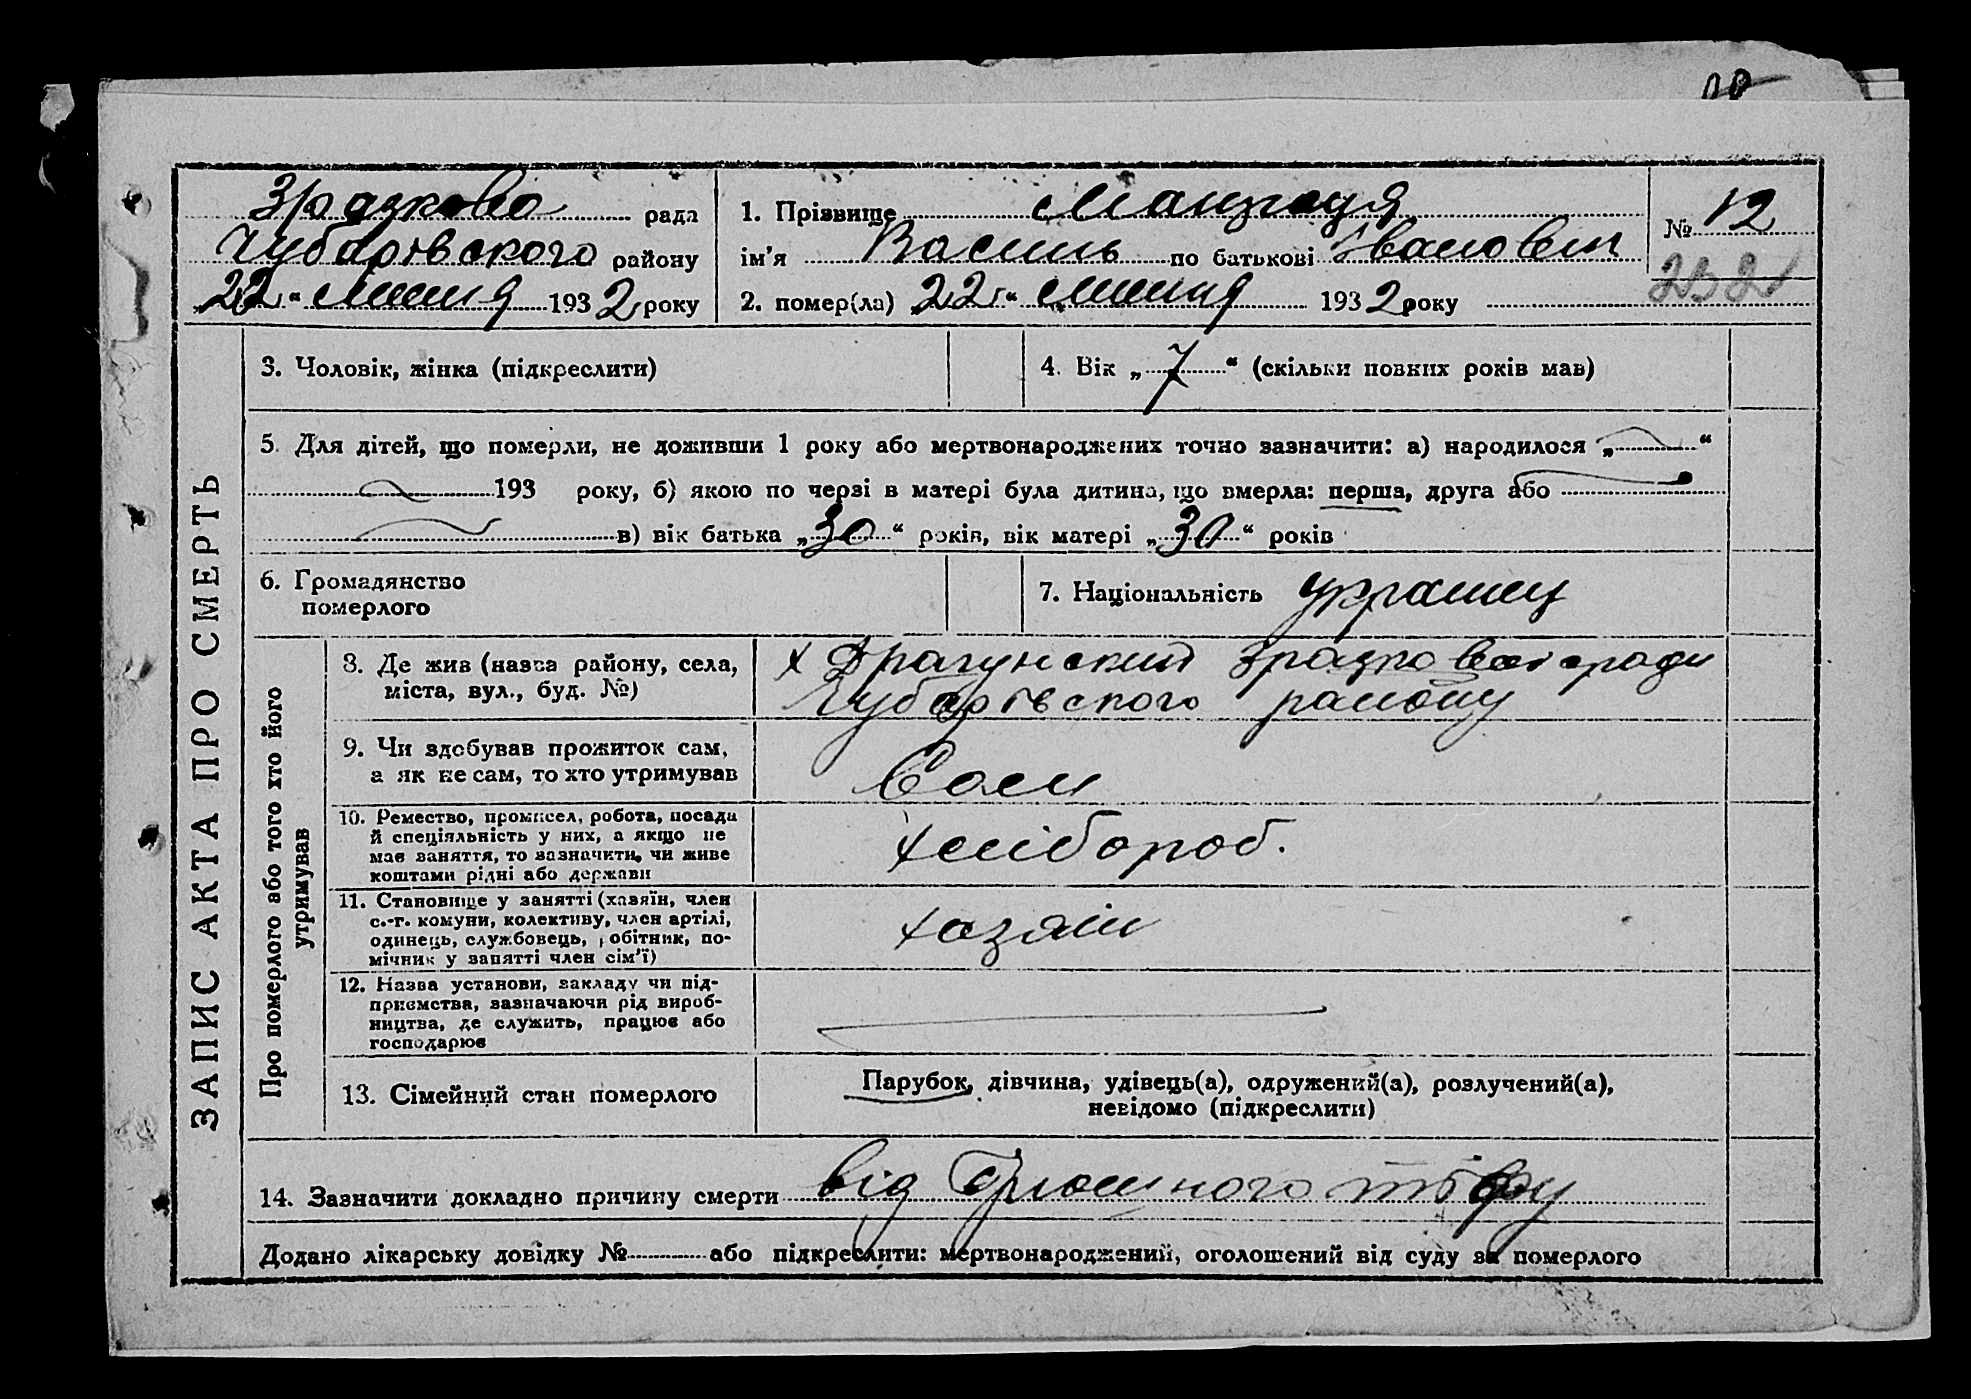 Зразкова рада
Чубарівського району
„22“ липня 1932 року
1. Прізвище
ім'я Василь по батькові Іванович
2. помер(ла) „22“ липня 1932 року
№ 12
ЗАПИС АКТА ПРО СМЕРТЬ
3. Чоловік, жінка (підкреслити)
4. Вік „7“ (скільки повних років мав)
5. Для дітей, що померли, не доживши 1 року або мертвонароджених точно зазначити: а) народилося „ “
193 року, б) якою по черзі в матері була дитина, що вмерла: перша, друга або
в) вік батька „30“ років, вік матері „30“ років
6. Громадянство
померлого
7. Національність українец
Про померлого або того хто його
утримував
8. Де жив (назва району, села,
міста, вул., буд. №)
х Драгунский Зразковой ради
Чубарівского району
9. Чи здобував прожиток сам,
а як не сам, то хто утримував
Сам
10. Ремество, промисел, робота, посада
й спеціяльність у них, а якщо не
має заняття, то зазначити, чи живе
коштами рідні або держави
хлібороб.
11. Становище у занятті (хазяїн, член
с.-г. комуни, колективу, член артілі,
одинець, службовець, робітник, по-
мічник у занятті член сім'ї)
хазяін
12. Назва установи, закладу чи під-
приємства, зазначаючи рід вироб-
ництва, де служить, працює або
господарює
13. Сімейний стан померлого
Парубок, дівчина, удівець(а), одружений(а), розлучений(а),
невідомо (підкреслити)
14. Зазначити докладно причину смерти від брюшного тіфу
Додано лікарську довідку № або підкреслити: мертвонароджений, оголошений від суду за померлого